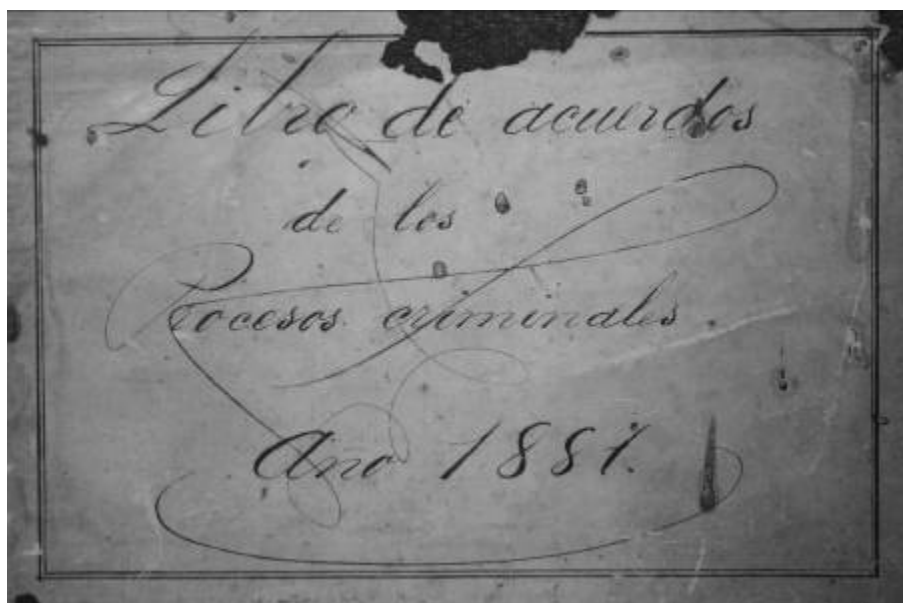 Libro de acuerdos
de los
Procesos criminales.
Año